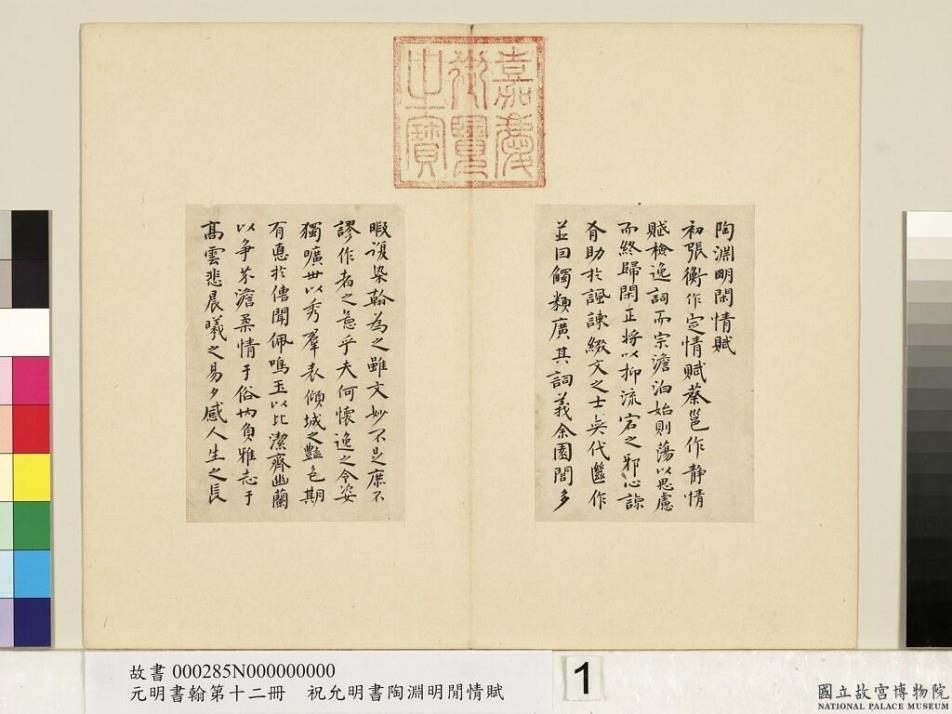 嘉慶
御覽
之寶
陶淵明閑情賦
初張衡作定情賦蔡邕作靜情
賦檢逸詞而宗澹泊始則蕩以思慮
而終歸閑正將以抑流宕之邪心諒
有助於諷諫綴文之士奕代繼作
並因觸類廣其詞義余園閭多
暇復染翰為之雖文妙不足庶不
謬作者之意乎夫何懷逸之令姿
獨曠世以秀羣表傾城之豔色期
有惪於傳聞佩鳴玉以比潔齊幽蘭
以爭芬澹柔情于俗內負雅志于
高雲悲晨曦之易夕感人生之長
故書 000285N000000000
元明書翰第十二冊　祝允明書陶淵明閒情賦
1
國立故宮博物院
NATIONAL PALACE MUSEUM